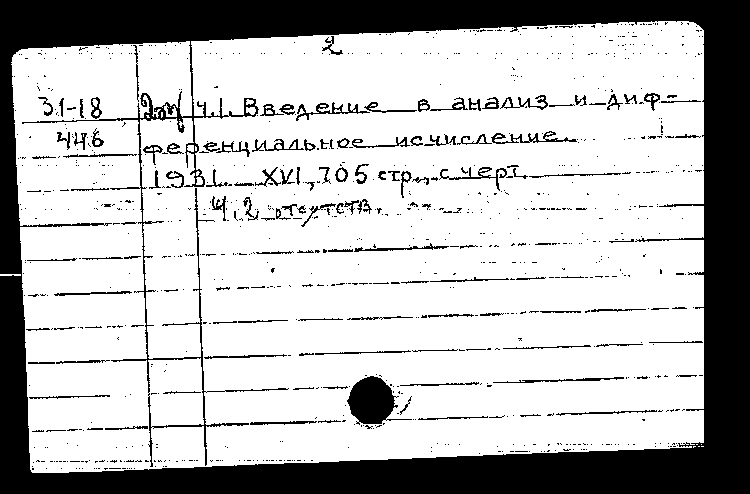 2
31-18 ч.1. Введение в анализ и диф-
446 ференциальное исчисление.
1931. XVI, 705 стр., с черт.
Ч.2 отсутств.